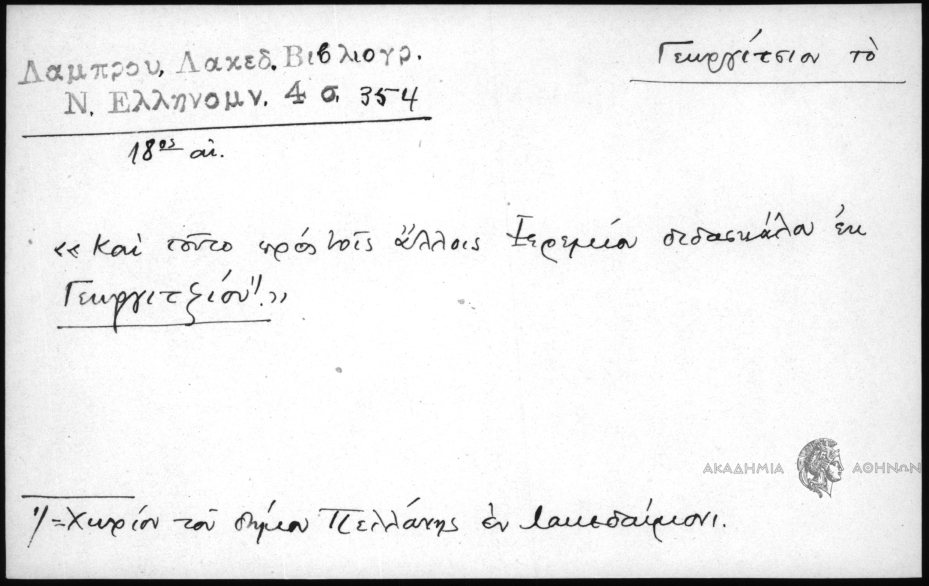 Λαμπρου, Λακεδ. Βιβλιογρ.
Ν. Ελληνομν. 4 σ. 354
Γεωργίτσιον τὸ
18ος αἰ.
«Καὶ τοῦτο πρός τοῖς ἄλλοις Ἱερεμίου διδασκάλου ἐκ
Γεωργιτζίου¹⁾.»
ΑΚΑΔΗΜΙΑ ΑΘΗΝΩΝ
¹⁾=Χωρίον τοῦ δήμου Πελλάνης ἐν Λακεδαίμονι.